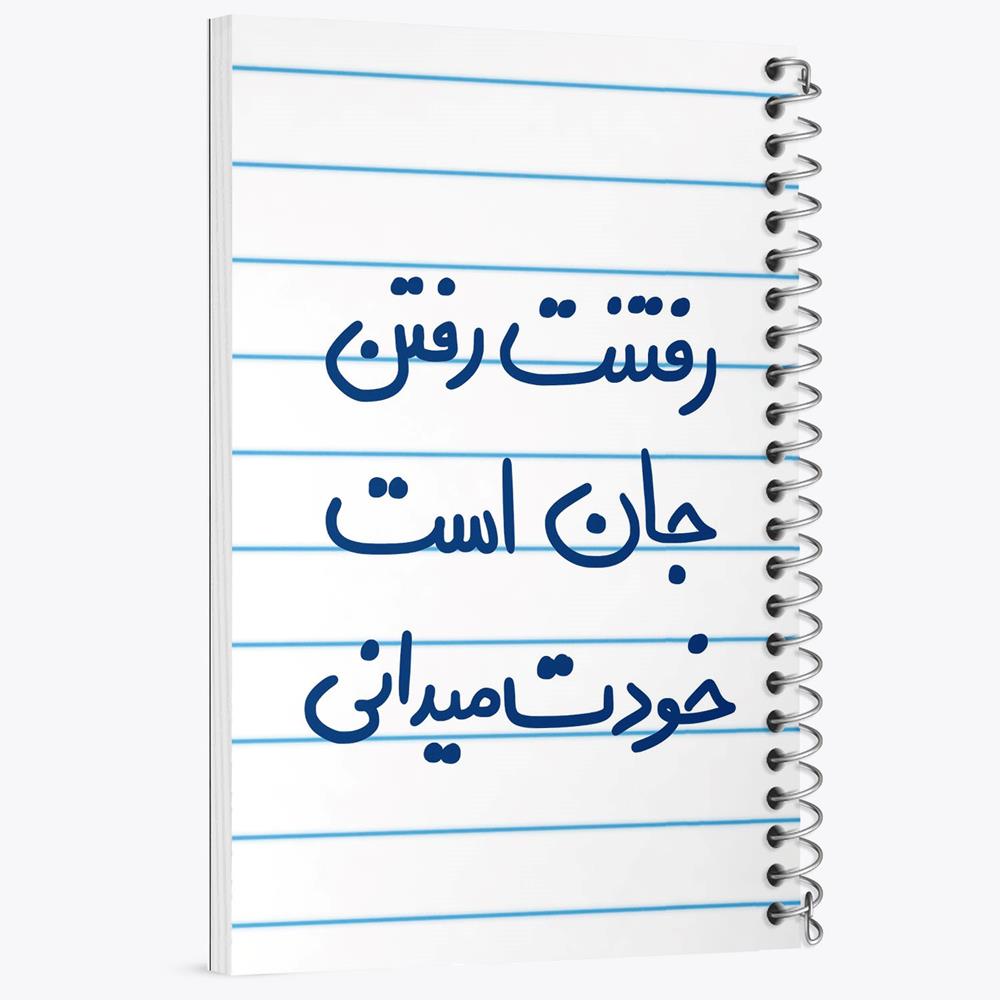 رفتنت رفتن
جان است
خودت میدانی